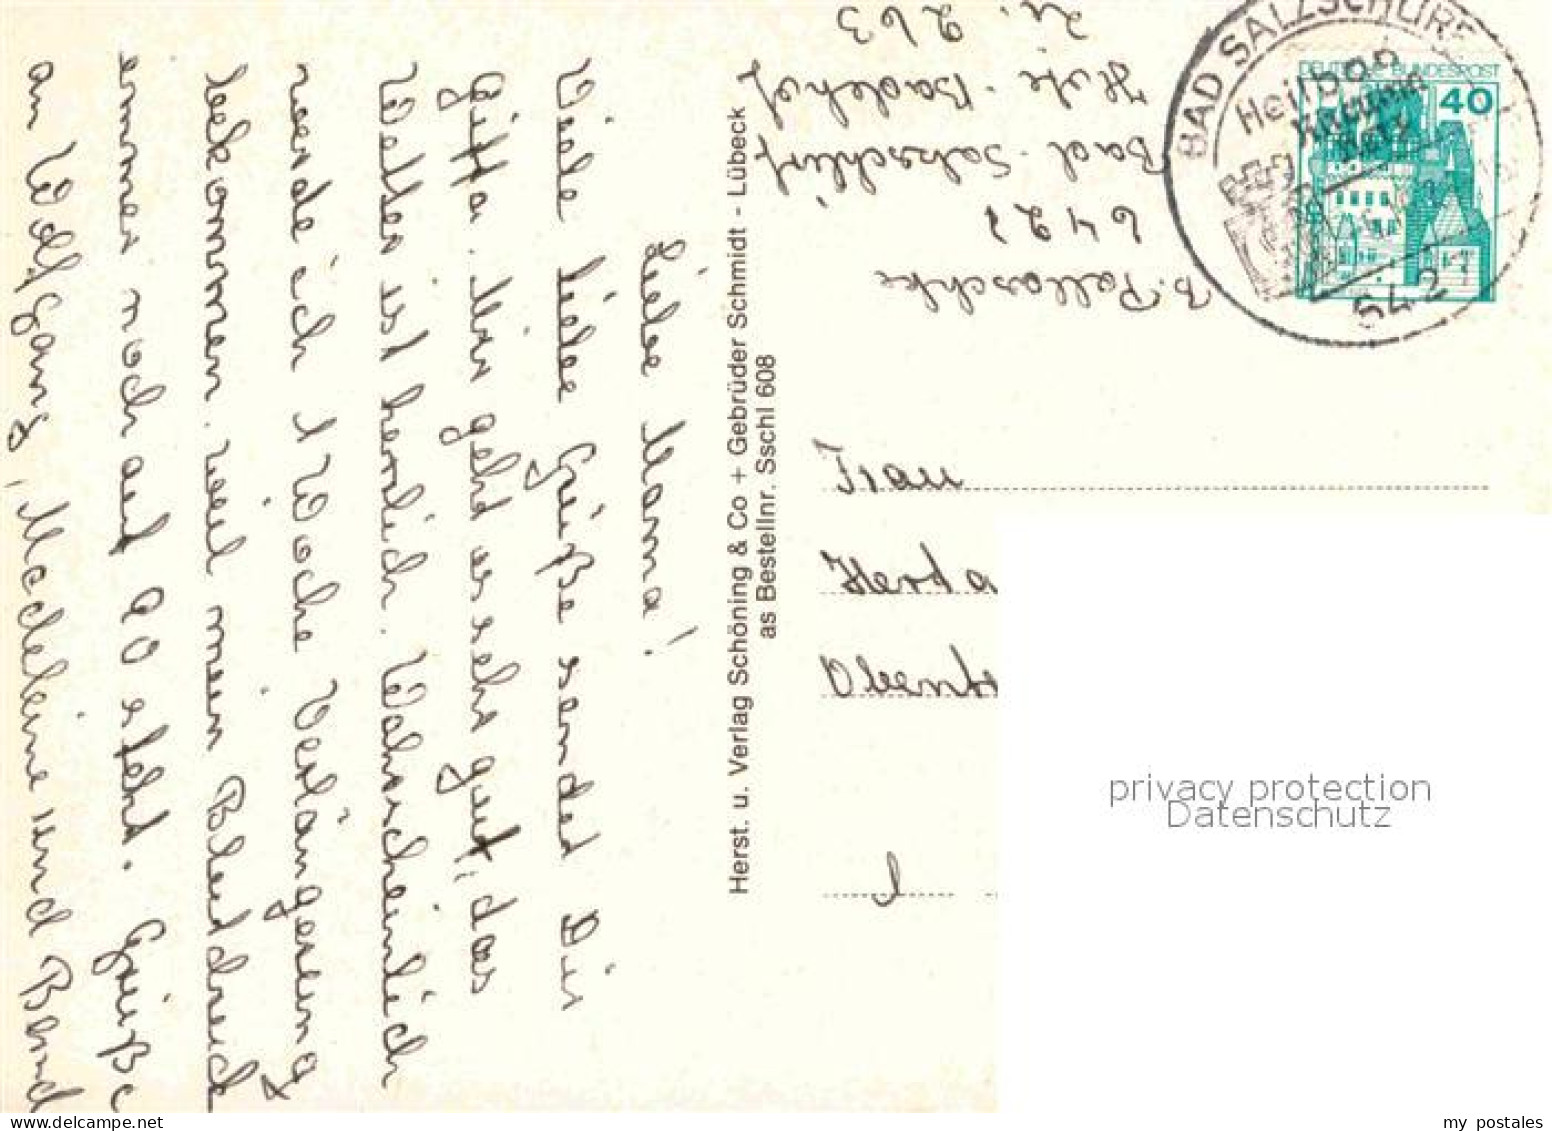 Liebe Mama!
Viele liebe Grüße sendet Dir
Gitta. Mir geht es recht gut, das
Wetter ist herrlich. Wahrscheinlich
werde ich 1 Woche Verlängerung
bekommen, weil mein Blutdruck
immer noch auf 90 steht. Grüße
an Wolfgang, Madeleine und Bernd
Herst. u. Verlag Schöning & Co + Gebrüder Schmidt - Lübeck
as Bestellnr. Sschl 608
Zi. 263
Hote. Badehof
Bad-Salzschlirf
6427
B. Pallaschke
BAD SALZSCHLIRF
Heilbad
6427
DEUTSCHE BUNDESPOST
40
Frau
Herta
privacy protection
Datenschutz
my postales